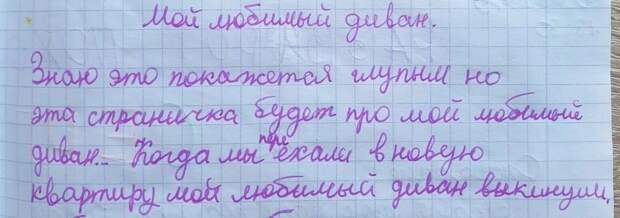 Мой любимый диван.
Знаю это покажется глупым но
эта страничка будет про мой любимый
диван... Когда мы переехали в новую
квартиру мой любимый диван выкинули,